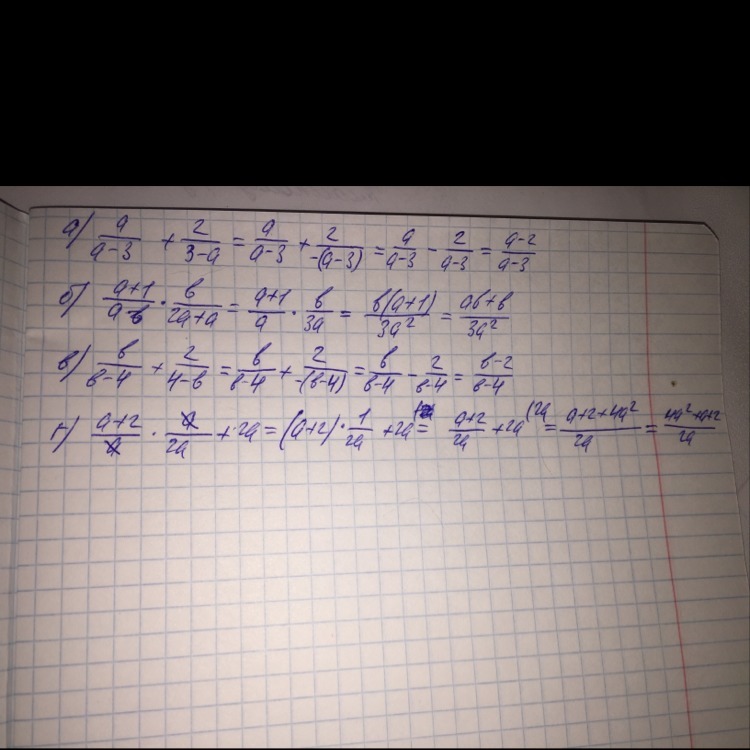 а) a/(a-3) + 2/(3-a) = a/(a-3) + 2/(-(a-3)) = a/(a-3) - 2/(a-3) = (a-2)/(a-3)
б) (a+1)/(a-b) · b/(2a+a) = (a+1)/a · b/(3a) = b(a+1)/(3a²) = (ab+b)/(3a²)
в) b/(b-4) + 2/(4-b) = b/(b-4) + 2/(-(b-4)) = b/(b-4) - 2/(b-4) = (b-2)/(b-4)
г) (a+2)/a · a/(2a) + 2a = (a+2) · 1/(2a) + 2a = (a+2)/(2a) + 2a (2a = (a+2+4a²)/(2a) = (4a²+a+2)/(2a)